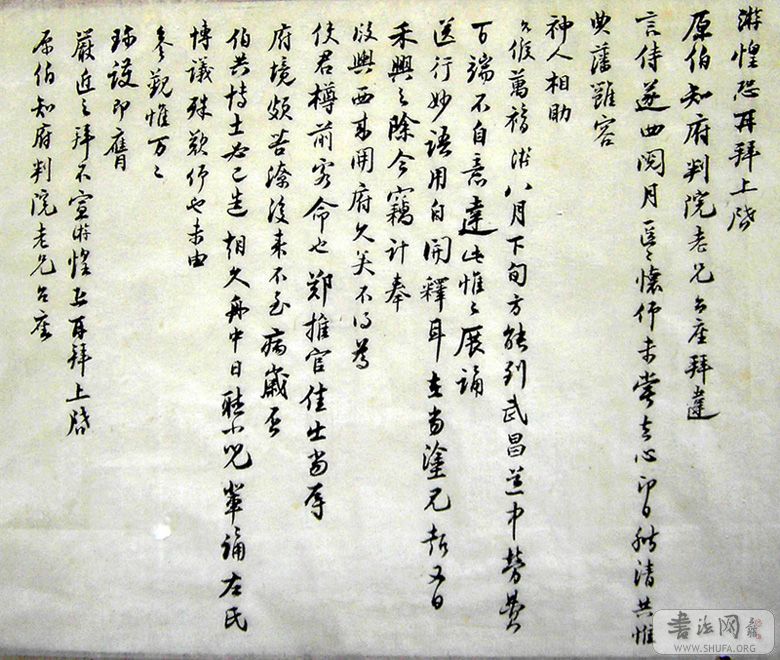 游惶恐再拜上啓
原伯知府判院老兄台座拜違
言侍遽四閱月區〻懷仰未嘗去心即日秋清共惟
典藩雍容
神人相助
台候萬福游八月下旬方能到武昌道中勞費
百端不自意達此惟〻展誦
送行妙語用自開釋耳在當塗見報
禾興之除今竊計奉
版輿西來開府久矣不得為
使君樽前客命也鄭推官佳士當辱
府境頗苦潦後來不至病歲否
伯共博士必已造朝久舟中日聽小兒輩誦左氏
博議殊歎仰也未由
參覲惟万〻
珍護即膺
嚴近之拜不宣游惶恐再拜上啓
原伯知府判院老兄台座
書法网
WWW.SHUFA.ORG